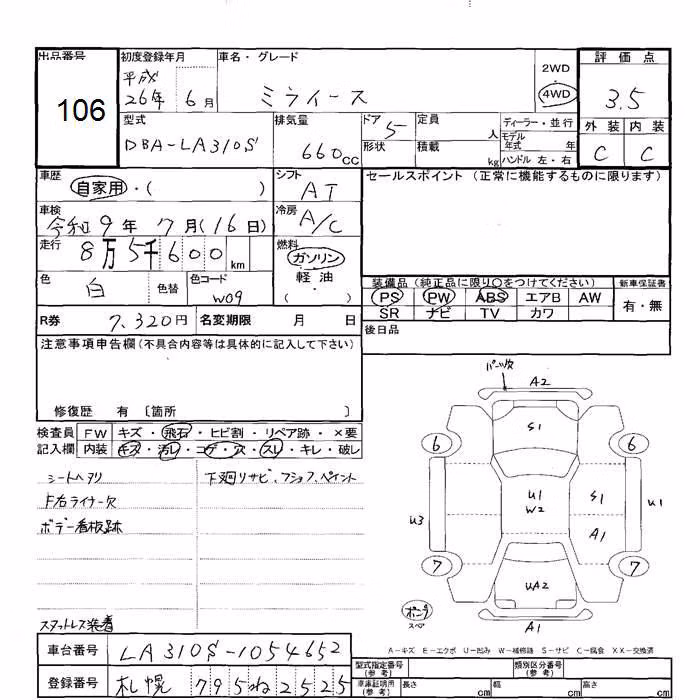 出品番号
106
初度登録年月
平成
26年 6月
車名・グレード
ミライース
2WD
・
4WD
評価点
3.5
外装 内装
C C
型式
DBA-LA310S
排気量
660cc
ドア 5
形状
定員 人
積載 kg
ディーラー・並行
モデル
年式 年
ハンドル 左・右
車歴
自家用・( )
シフト
AT
車検
令和9年 7月(16日)
冷房
A/C
走行
8万5千600km
燃料
ガソリン
軽油
( )
色
白
色替
色コード
W09
R券 7,320円 名変期限 月 日
セールスポイント(正常に機能するものに限ります)
装備品(純正品に限り○をつけてください) 新車保証書
PS PW ABS エアB AW
SR ナビ TV カワ
有・無
後日品
注意事項申告欄(不具合内容等は具体的に記入して下さい)
修復歴 有 〔箇所 〕
検査員 FW キズ・飛石・ヒビ割・リペア跡・×要
記入欄 内装 キズ・汚レ・コゲ・穴・スレ・キレ・破レ
シートヘタリ
F右ライナー欠
ボデー看板跡
下廻リサビ、フショク、ペイント
スタットレス装着
パーツ欠
A2
S1
6 6
U1
W2
S1
A1
U3
U1
7 7
UA2
ポンプ
スペア
A1
A-キズ E-エクボ U-凹み W-補修跡 S-サビ C-腐食 XX-交換済
車台番号 LA310S-1054652
登録番号 札幌 795ね2525
型式指定番号
(参考)
類別区分番号
(参考)
車庫証明用
(参考)
長さ cm 幅 cm 高さ cm